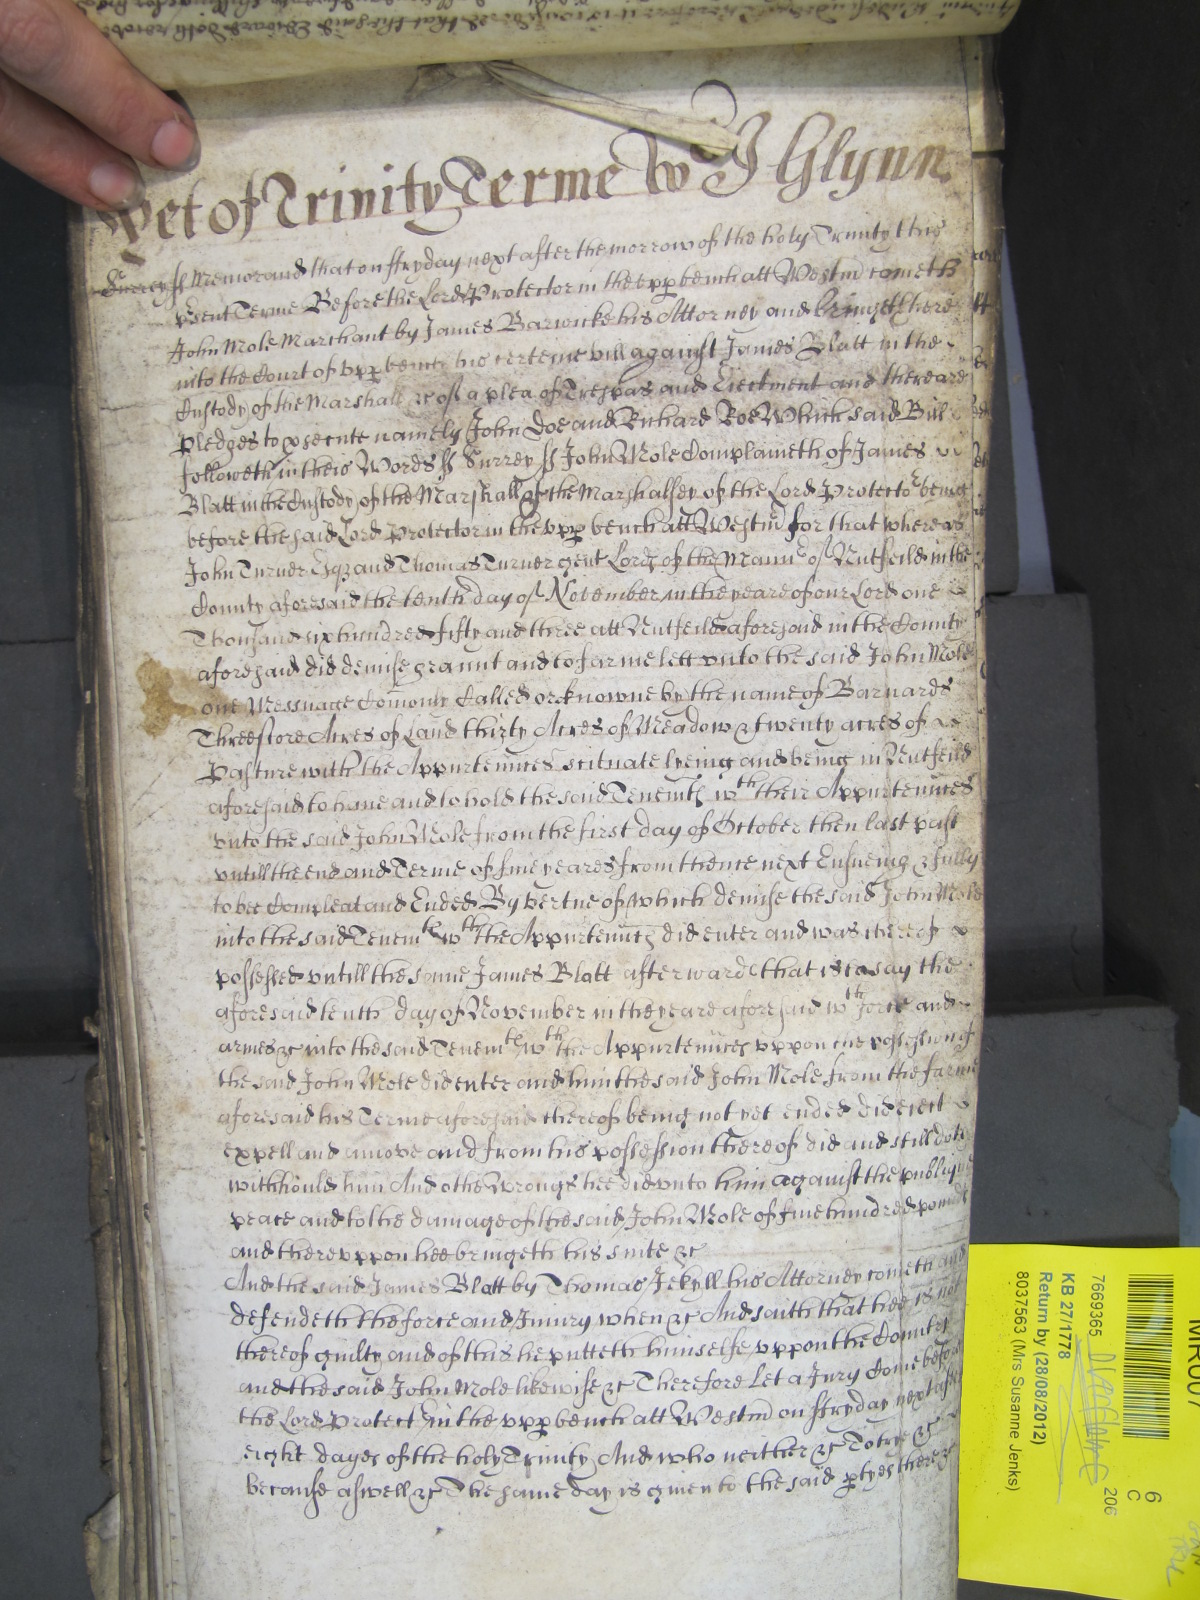 Yet of Trinity Terme Wm J Glynn
Surrey ss Memorand that on ffryday next after the morrow of the holy Trinity this
p'sent Terme Before the Lord Protector in the vpp bench att Westm cometh
John Mole Marchant by James Barwicke his Attorney and bringeth here
into the Court of vpp bench his certeine bill against James Blatt in the
Custody of the Marshall &c of a plea of Trespas and Eiectment and there are
pledges to prosecute namely John Doe and Richard Roe Which said Bill
followeth in theis Words ss Surrey ss John Mole Complaineth of James
Blatt in the Custody of the Marshall of the Marshalsey of the Lord Protector being
before the said Lord Protector in the vpp bench att Westm for that whereas
John Turner Esqz and Thomas Turner gent Lords of the Mann of Nutfeild in the
County aforesaid the tenth day of November in the yeare of our Lord one
Thousand six hundred fifty and three att Nutfeild aforesaid in the County
aforesaid did demise graunt and to farme lett vnto the said John Mole
one Messuage Comonly Called or knowne by the name of Barnards
Threescore Acres of Land thirty Acres of Meadow & twenty acres of
Pasture with the Appurtennces scituate lyeing and being in Nutfeild
aforesaid to haue and to hold the said Tenemts wth their Appurtennces
vnto the said John Mole from the first day of October then last past
vntill the end and Terme of fiue yeares from thence next Ensueing & fully
to bee Compleat and Ended By vertue of which demise the said John Mole
into the said Tenemts wth the Appurtennces did enter and was thereof
possessed vntill the same James Blatt afterwards that is to say the
aforesaid tenth day of November in the yeare aforesaid wth force and
armes &c into the said Tenemts wth the Appurtennces vppon the possession of
the said John Mole did enter and him the said John Mole from the farme
aforesaid his Terme aforesaid thereof being not yet ended did eiect
expell and amove and from his possession thereof did and still doth
withhould him And other Wrongs hee did vnto him against the publique
peace and to the damage of the said John Mole of fiue hundred pounds
and therevppon hee bringeth his suite &c
And the said James Blatt by Thomas Jekyll his Attorney cometh and
defendeth the force and Iniury when &c And saith that hee is not
thereof guilty and of this he putteth himselfe vppon the Country
and the said John Mole likewise &c Therefore Let a Jury Come before
the Lord Protect in the vpp bench att Westm on ffryday next after
eight dayes of the holy Trinity And who neither &c To trye &c
because aswell &c The same day is giuen to the said ptyes there &c
7669365
KB 27/1778
Return by (28/08/2012)
8037563 (Mrs Susanne Jenks)
206
6
C